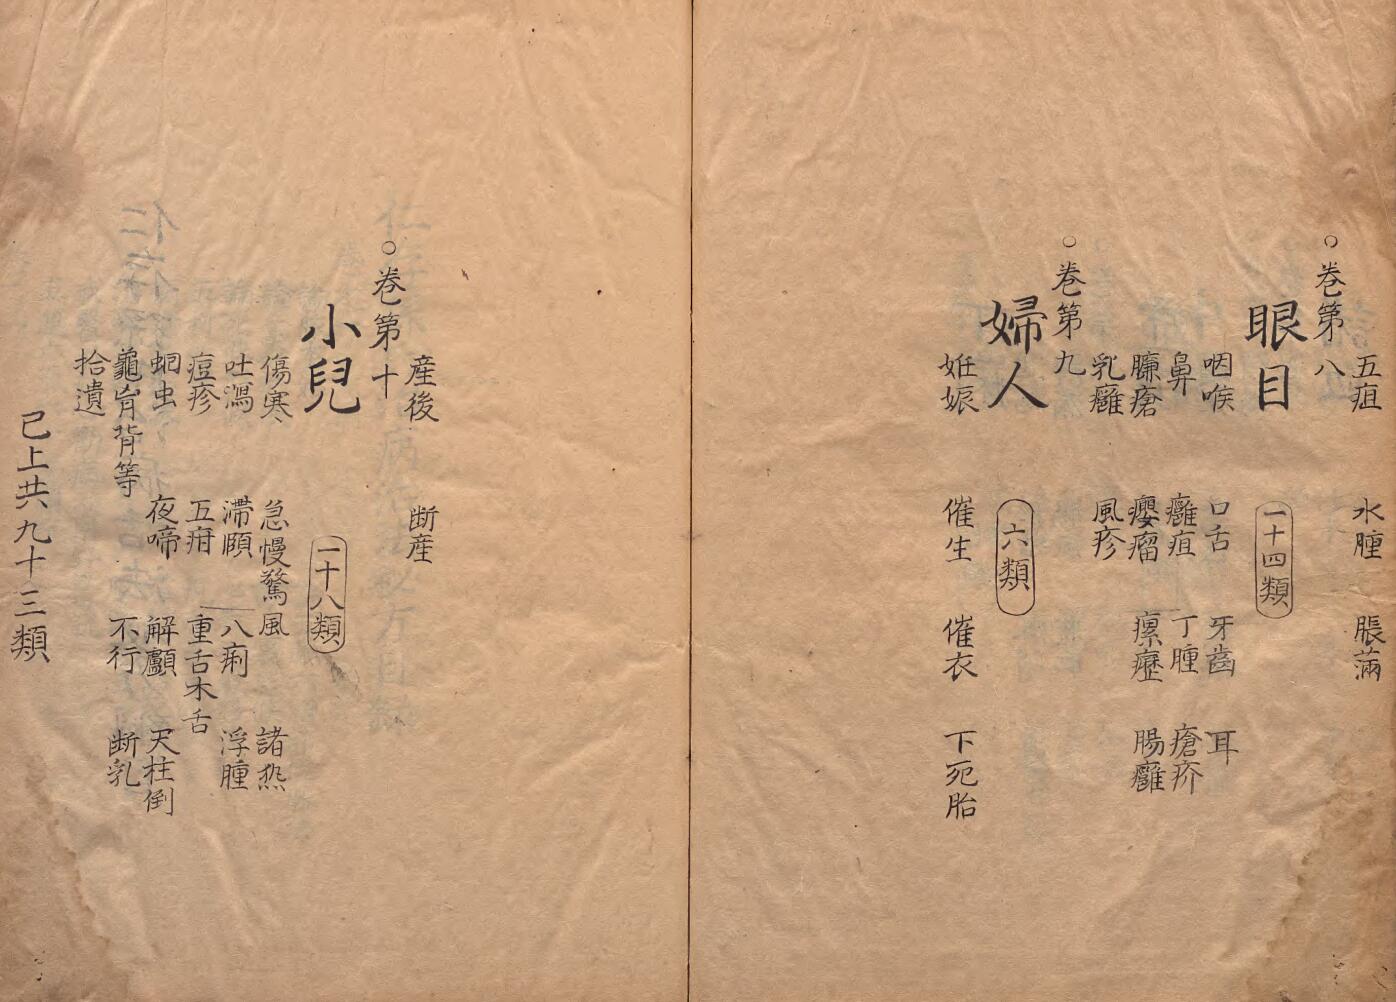 五疽 水腫 脹滿
○卷第八
眼目 一十四類
咽喉 口舌 牙齒 耳
鼻 癰疽 丁腫 瘡疥
臁瘡 癭瘤 瘰癧 腸癰
乳癰 風疹
○卷第九
婦人 六類
妊娠 催生 催衣 下死胎
産後 断産
○卷第十
小兒 一十八類
傷寒 急慢驚風 諸热
吐瀉 滞頤 八痢 浮腫
痘疹 五疳 重舌木舌
蛔虫 夜啼 解顱 天柱倒
龜胷背等 不行 断乳
拾遺
已上共九十三類